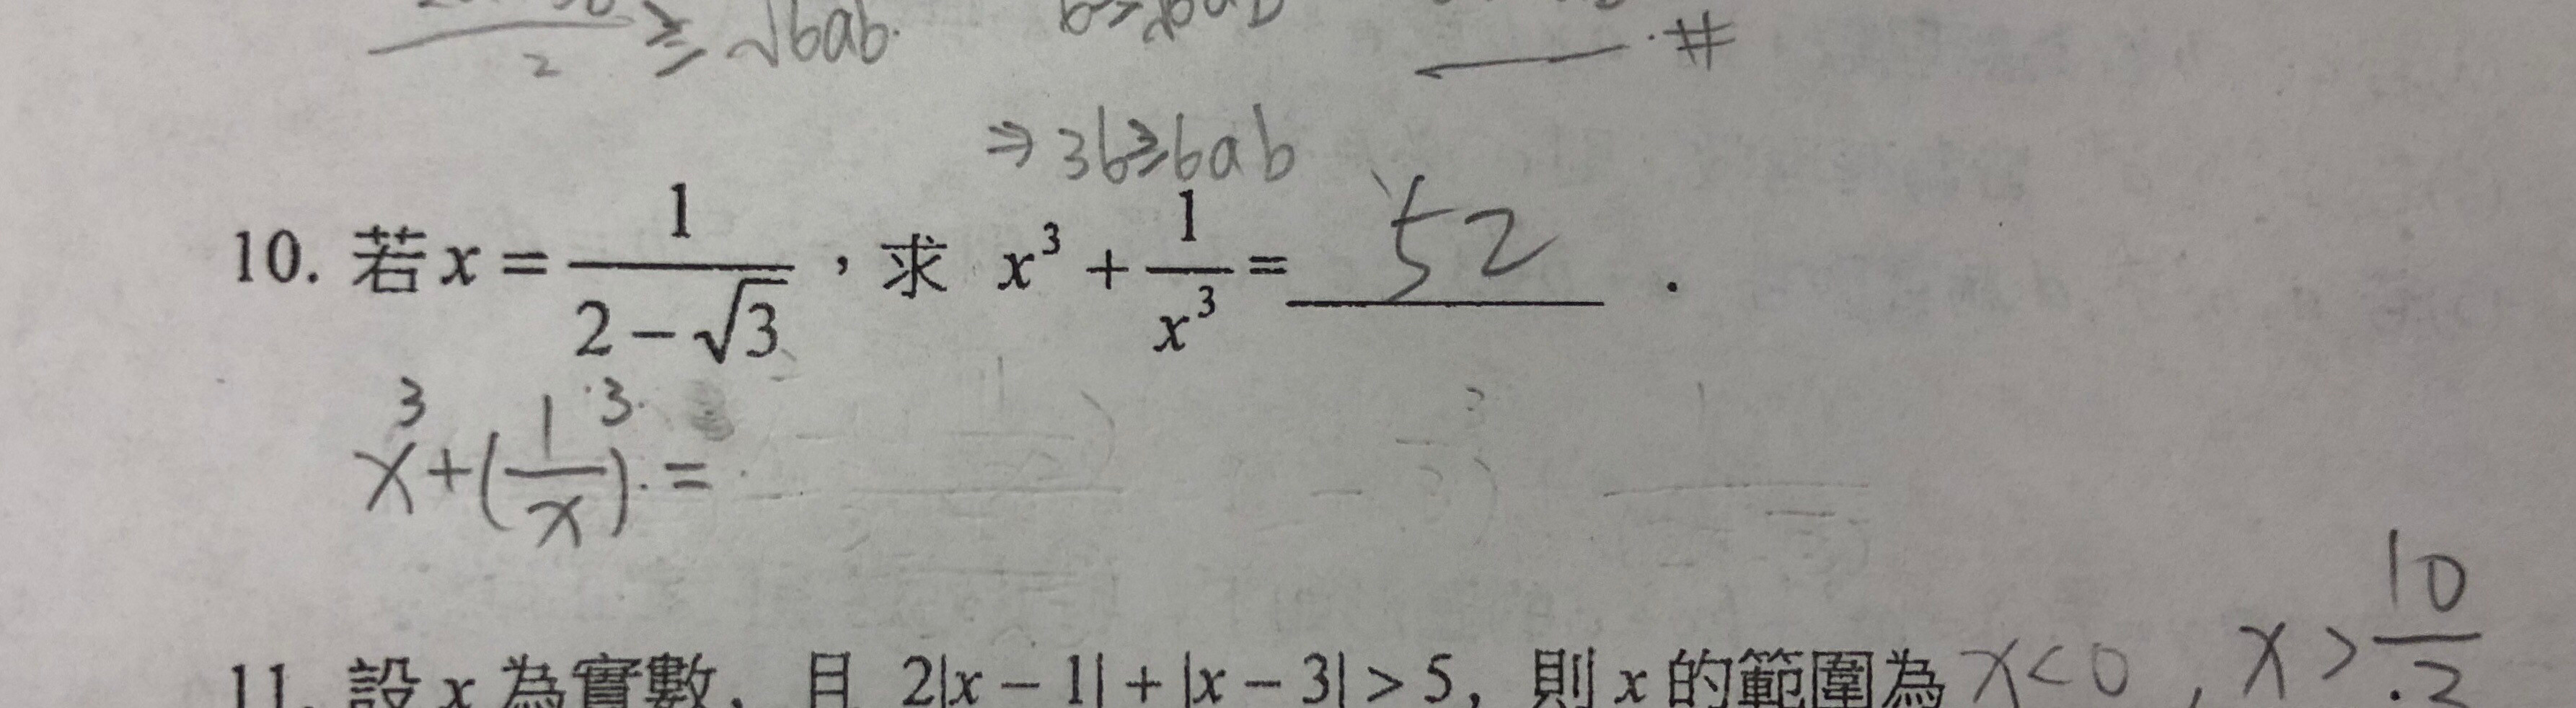 2 ≥ √6ab.
⇒ 3b≥6ab
10. 若 x = 1/(2 − √3) ，求 x³ + 1/x³ = 52 .
x³ + (1/x)³ =
11. 設 x 為實數，且 2|x − 1| + |x − 3| > 5，則 x 的範圍為 x<0 , x > 10/.2